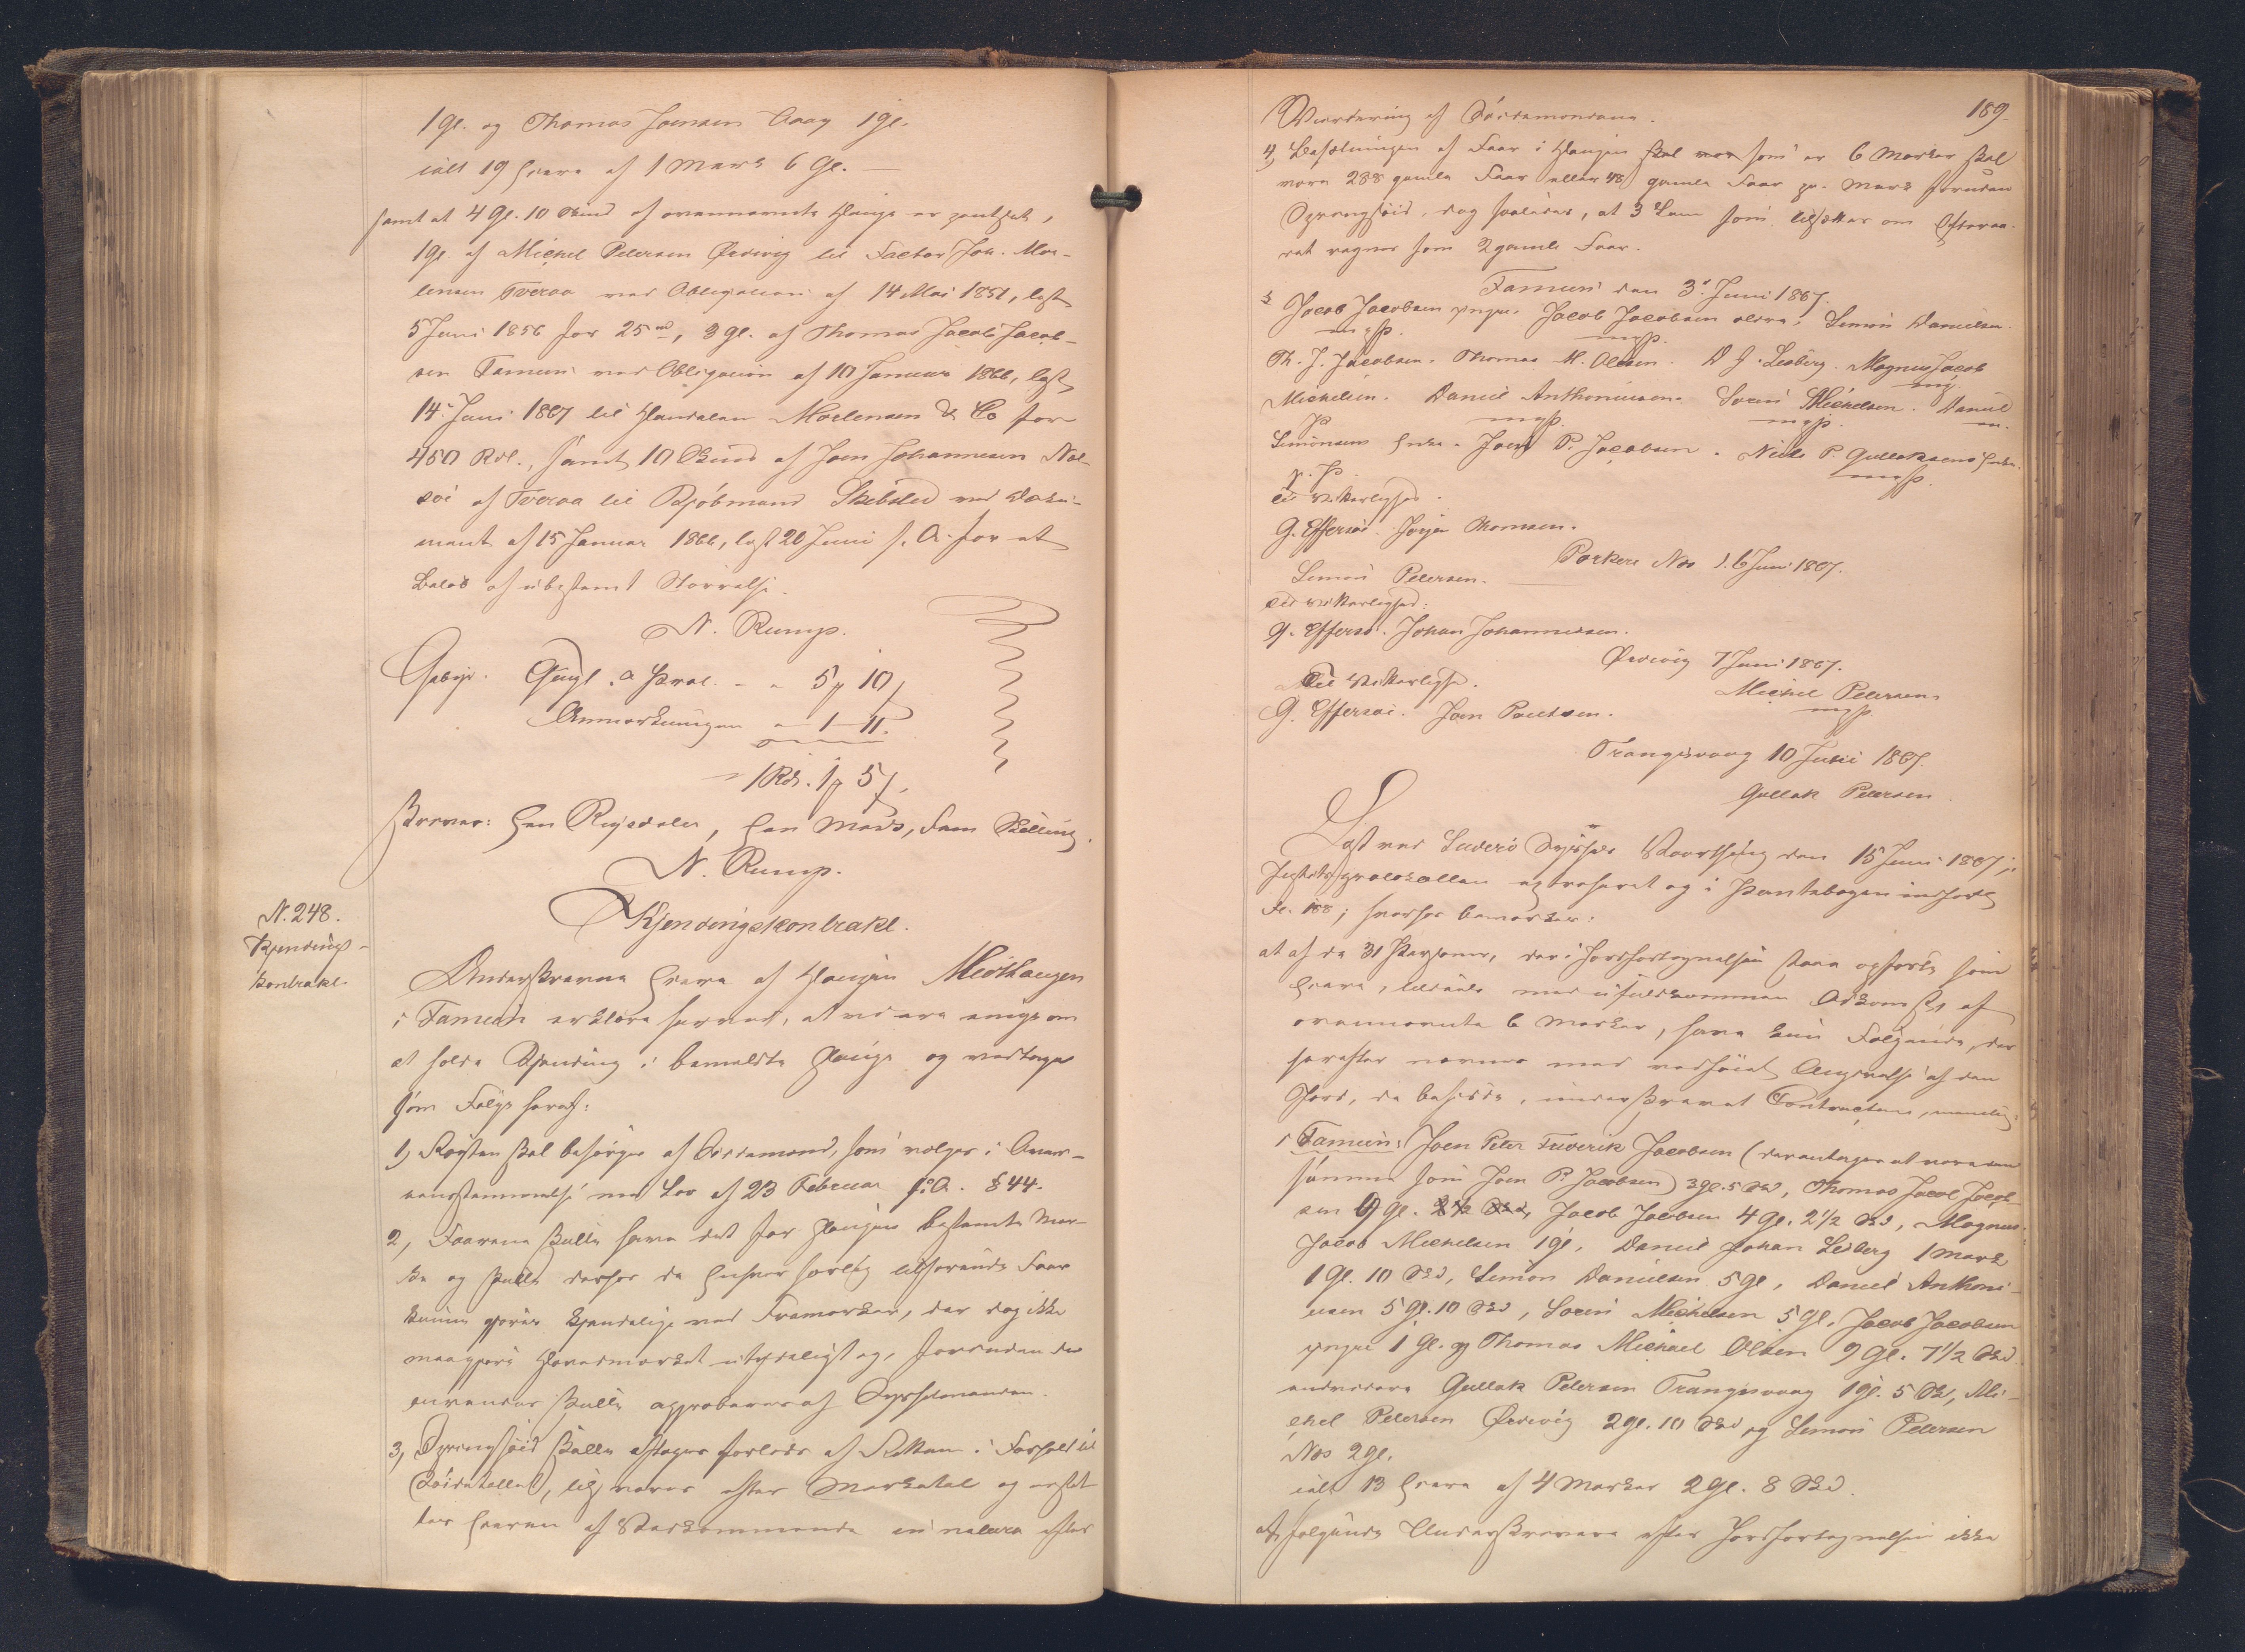 1 Gl. og Thomas Joensen Vaag 1 Gl.
ialt 19 Eiere af 1 Mark 6 Gl. —
samt at 4 Gl. 10 Skind af ovennævnte Hauge er pantsat,
1 Gl. af Michel Petersen Ørdevig til Factor Joh. Mor-
tensen Tveraa ved Obligation af 14 Mai 1851, læst
5 Juni 1856 for 25 rd, 3 Gl. af Thomas Jacob Jacob-
sen Famien ved Obligation af 10 Januar 1866, læst
14 Juni 1867 til Handelen Mortensen & Co for
450 Rdl., samt 10 Skind af Joen Johannesen Nol-
søi af Tveraa til Kjøbmand Skibsted ved Doku-
ment af 15 Januar 1866, læst 20 Juni s. A. for et
Beløb af ubestemt Størrelse.
N. Rump.
Gebyr. Thingl. a Prot. - - 5 # 10 ß
Anmærkningen - 1 - 11.
= 1 Rdl. 1 # 5 ß.
skriver: Een Rigsdaler, een Mark, fem Skilling.
N. Rump.
N. 248.
Kjendings-
kontrakt.
Kjendingskontrakt.
Underskrevne Eiere af Haugen Midthaugen
i Famien erklære herved, at vi ere enige om
at holde Kjending i bemeldte Hauge og vedtage
som Følge heraf:
1, Røgten skal besørges af Oddemænd, som vælges i Over-
eensstemmelse med Lov af 23 Februar f. A. § 44.
2, Faarene skulle have det for Haugen bestemte Mær-
ke og skulle derfor de Enhver særlig tilhørende Faar
kunne gjøres kjendelige ved Fremærker, der dog ikke
maa gjøre Hovedmærket utydeligt og, forinden de
anvendes skulle approberes af Sysselmanden.
3, Springføid skulle aftages forlods af Flokken i Forhold til
Føidetallet, ligesom efter Markatal og erstat-
tes Eieren af Vedkommende in natura efter
189.
Vurdering af Oddemændene.
4, Besætningen af Faar i Haugen skal være som er 6 Marker skal
være 288 gamle Faar eller 48 gamle Faar pr. Mark foruden
Springføid, dog saaledes, at 3 Lam som tilsættes om Efteraa-
ret regnes som 2 gamle Faar.
Famien den 3. Juni 1867.
Jacob Jacobsen yngre. Jacob Jacobsen ældre. Simon Danielsen.
m. f. P. m. f. P.
Th. J. Jacobsen. Thomas M. Olsen. D. J. Lidberg. Magnus Jacob
Michelsen. Daniel Anthoniussen. Sørin Michelsen. Daniel
m. f. P. m. f. P.
Simonsens Enke. Joen P. Jacobsen. Niels P. Gullaksens Enke.
m. f. P.
Til Vitterlighed.
G. Effersøe. Jørgen Thomsen.
Porkere Næs d. 6 Juni 1867.
Simon Petersen.
Til Vitterlighed:
G. Effersøe. Johan Johannessen.
Ørdevig 7 Juni 1867.
Michel Petersen.
m. f. P.
Til Vitterlighed.
G. Effersøe. Joen Poulsen.
Trangisvaag 10 Juni 1867.
Gullak Petersen
Læst ved Suderø Syssels Vaarthing den 15 Juni 1867,
Justitsprotocollen extraheret og i Pantebogen indført
Fol. 188; hvorfor bemærkes:
at af de 31 Personer, der i Jordfortegnelsen staae opførte som
Eiere, tildeels med ufuldkommen Adkomst, af
ovennævnte 6 Marker, have kun Følgende, der
herefter nævnes med vedføiet Angivelse af den
Jord, de besidde, underskrevet Contracten, nemlig:
i Famien: Joen Peter Frederik Jacobsen (der antages at være den
samme som Joen P. Jacobsen) 3 Gl. 5 Skd, Thomas Jacob Jacob-
sen 9 Gl. Jacob Jacobsen 4 Gl. 2 1/2 Skd, Magnus
Jacob Michelsen 1 Gl, Daniel Johan Lidberg 1 Mark
1 Gl. 10 Skd, Simon Danielsen 5 Gl, Daniel Anthoni-
ussen 5 Gl. 10 Skd, Sørin Michelsen 5 Gl, Jacob Jacobsen
yngre 1 Gl. og Thomas Michael Olsen 9 Gl. 7 1/2 Skd
endvidere Gullak Petersen Trangisvaag 1 Gl. 5 Sk, Mi-
chel Petersen Ørdevig 2 Gl. 10 Skd og Simon Petersen
Næs 2 Gl.
ialt 13 Eiere af 4 Marker 2 Gl. 8 Skd.
at følgende Underskrivere efter Jordfortegnelsen ikke